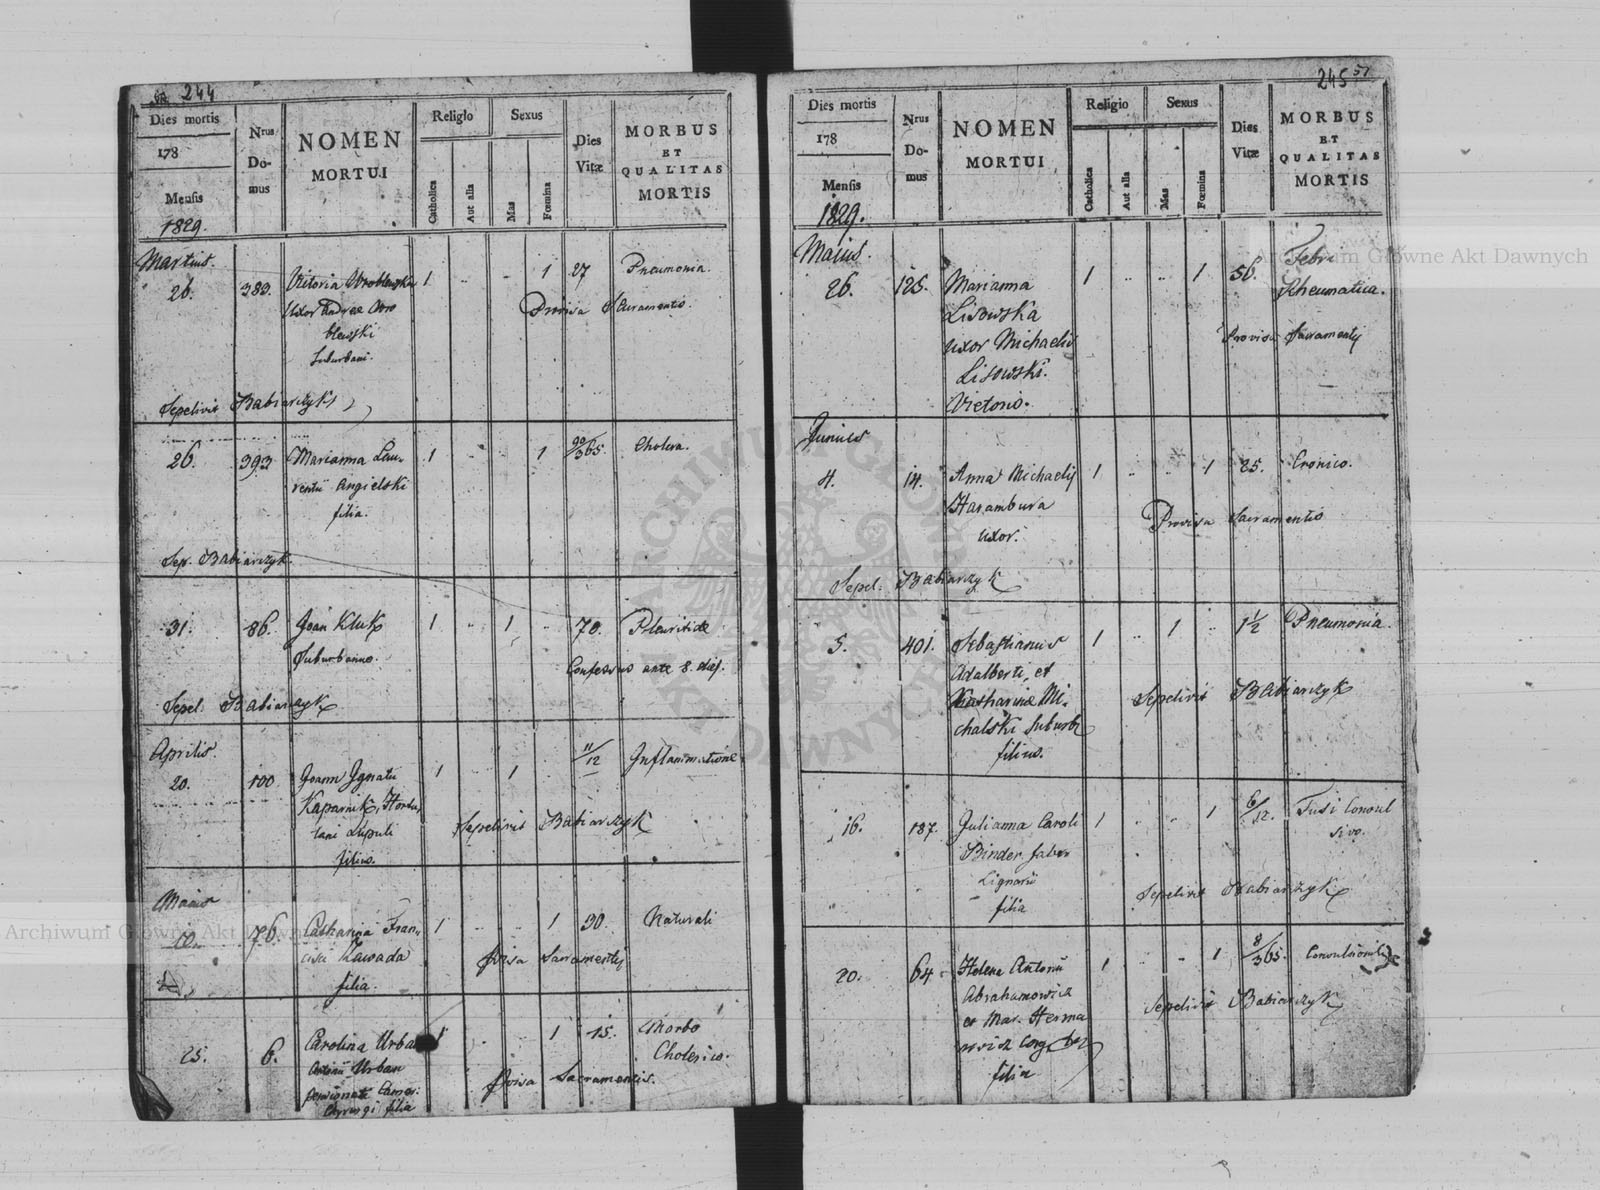 244
Dies mortis
178
Mensis
1829.
Nrus
Do-
mus
NOMEN
MORTUI
Religio
Catholica
Aut alia
Sexus
Mas
Fœmina
Dies
Vitæ
MORBUS
ET
QUALITAS
MORTIS
Martius.
26. 383. Victoria Wroblewska 1 .. .. 1 27 Pneumonia.
Uxor Andreæ Wro
blewski
Suburbani.
Provisa Sacramentis.
Sepelivit Babiarczyk
26. 393 Marianna Lau- 1 .. .. 1 90/365. Cholera.
rentii Angielski
filia.
Sep. Babiarczyk.
31. 86. Joan Kluk 1 .. 1 .. 70. Pleuritide
Suburbanus.
Confessus ante 8. dies.
Sepel. Babiarczyk
Aprilis.
20. 100 Joann Ignatii 1 .. 1 .. 11/12 Inflammatione
Kaparnik, Hortu-
lani Lupuli
filius.
Sepelivit Babiarczyk
Maius
76. Catharina Fran- 1 .. .. 1 30. Naturali
cisci Kawada
filia.
pvisa Sacramentis
25. 6. Carolina Urba 1 .. .. 1 15. Morbo
Cholerico.
Antonii Urban
filia
pvisa Sacramentis.
245 51
Dies mortis
178
Mensis
1829.
Nrus
Do-
mus
NOMEN
MORTUI
Religio
Catholica
Aut alia
Sexus
Mas
Fœmina
Dies
Vitæ
MORBUS
ET
QUALITAS
MORTIS
Maius.
26. 125. Marianna 1 .. .. 1 56. Febri
Rheumatica.
Lisowska
uxor Michaelis
Lisowski.
Provisa Sacramentis
Junius
4. 14. Anna Michaelis 1 .. .. 1 35. Cronico.
Harambura
uxor.
Provisa Sacramentis
Sepel: Babiarczyk
5. 401. Sebastianus 1 .. 1 .. 1 1/2 Pneumonia.
Adalberti, et
Katharinæ Mi-
chalski suburb
filius.
Sepelivit Babiarczyk
16. 187. Julianna Caroli 1 .. .. 1 6/12. Tusi Convul
sivo.
Binder fabri
Lignarii
filia
Sepelivit Babiarczyk
20. 64. Helena Antonii 1 .. .. 1 8/365. Convulsionib
Abrahamowicz
et Mar. Herma
nowicz
filia
Sepelivit Babiarczyk
Archiwum Główne Akt Dawnych
Archiwum Główne Akt Dawnych
ARCHIWUM GŁÓWNE AKT DAWNYCH